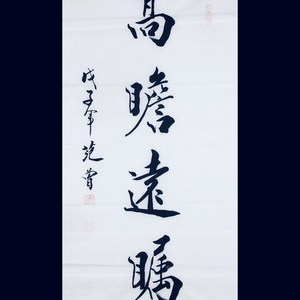 高瞻遠瞩
戊子年 范曾